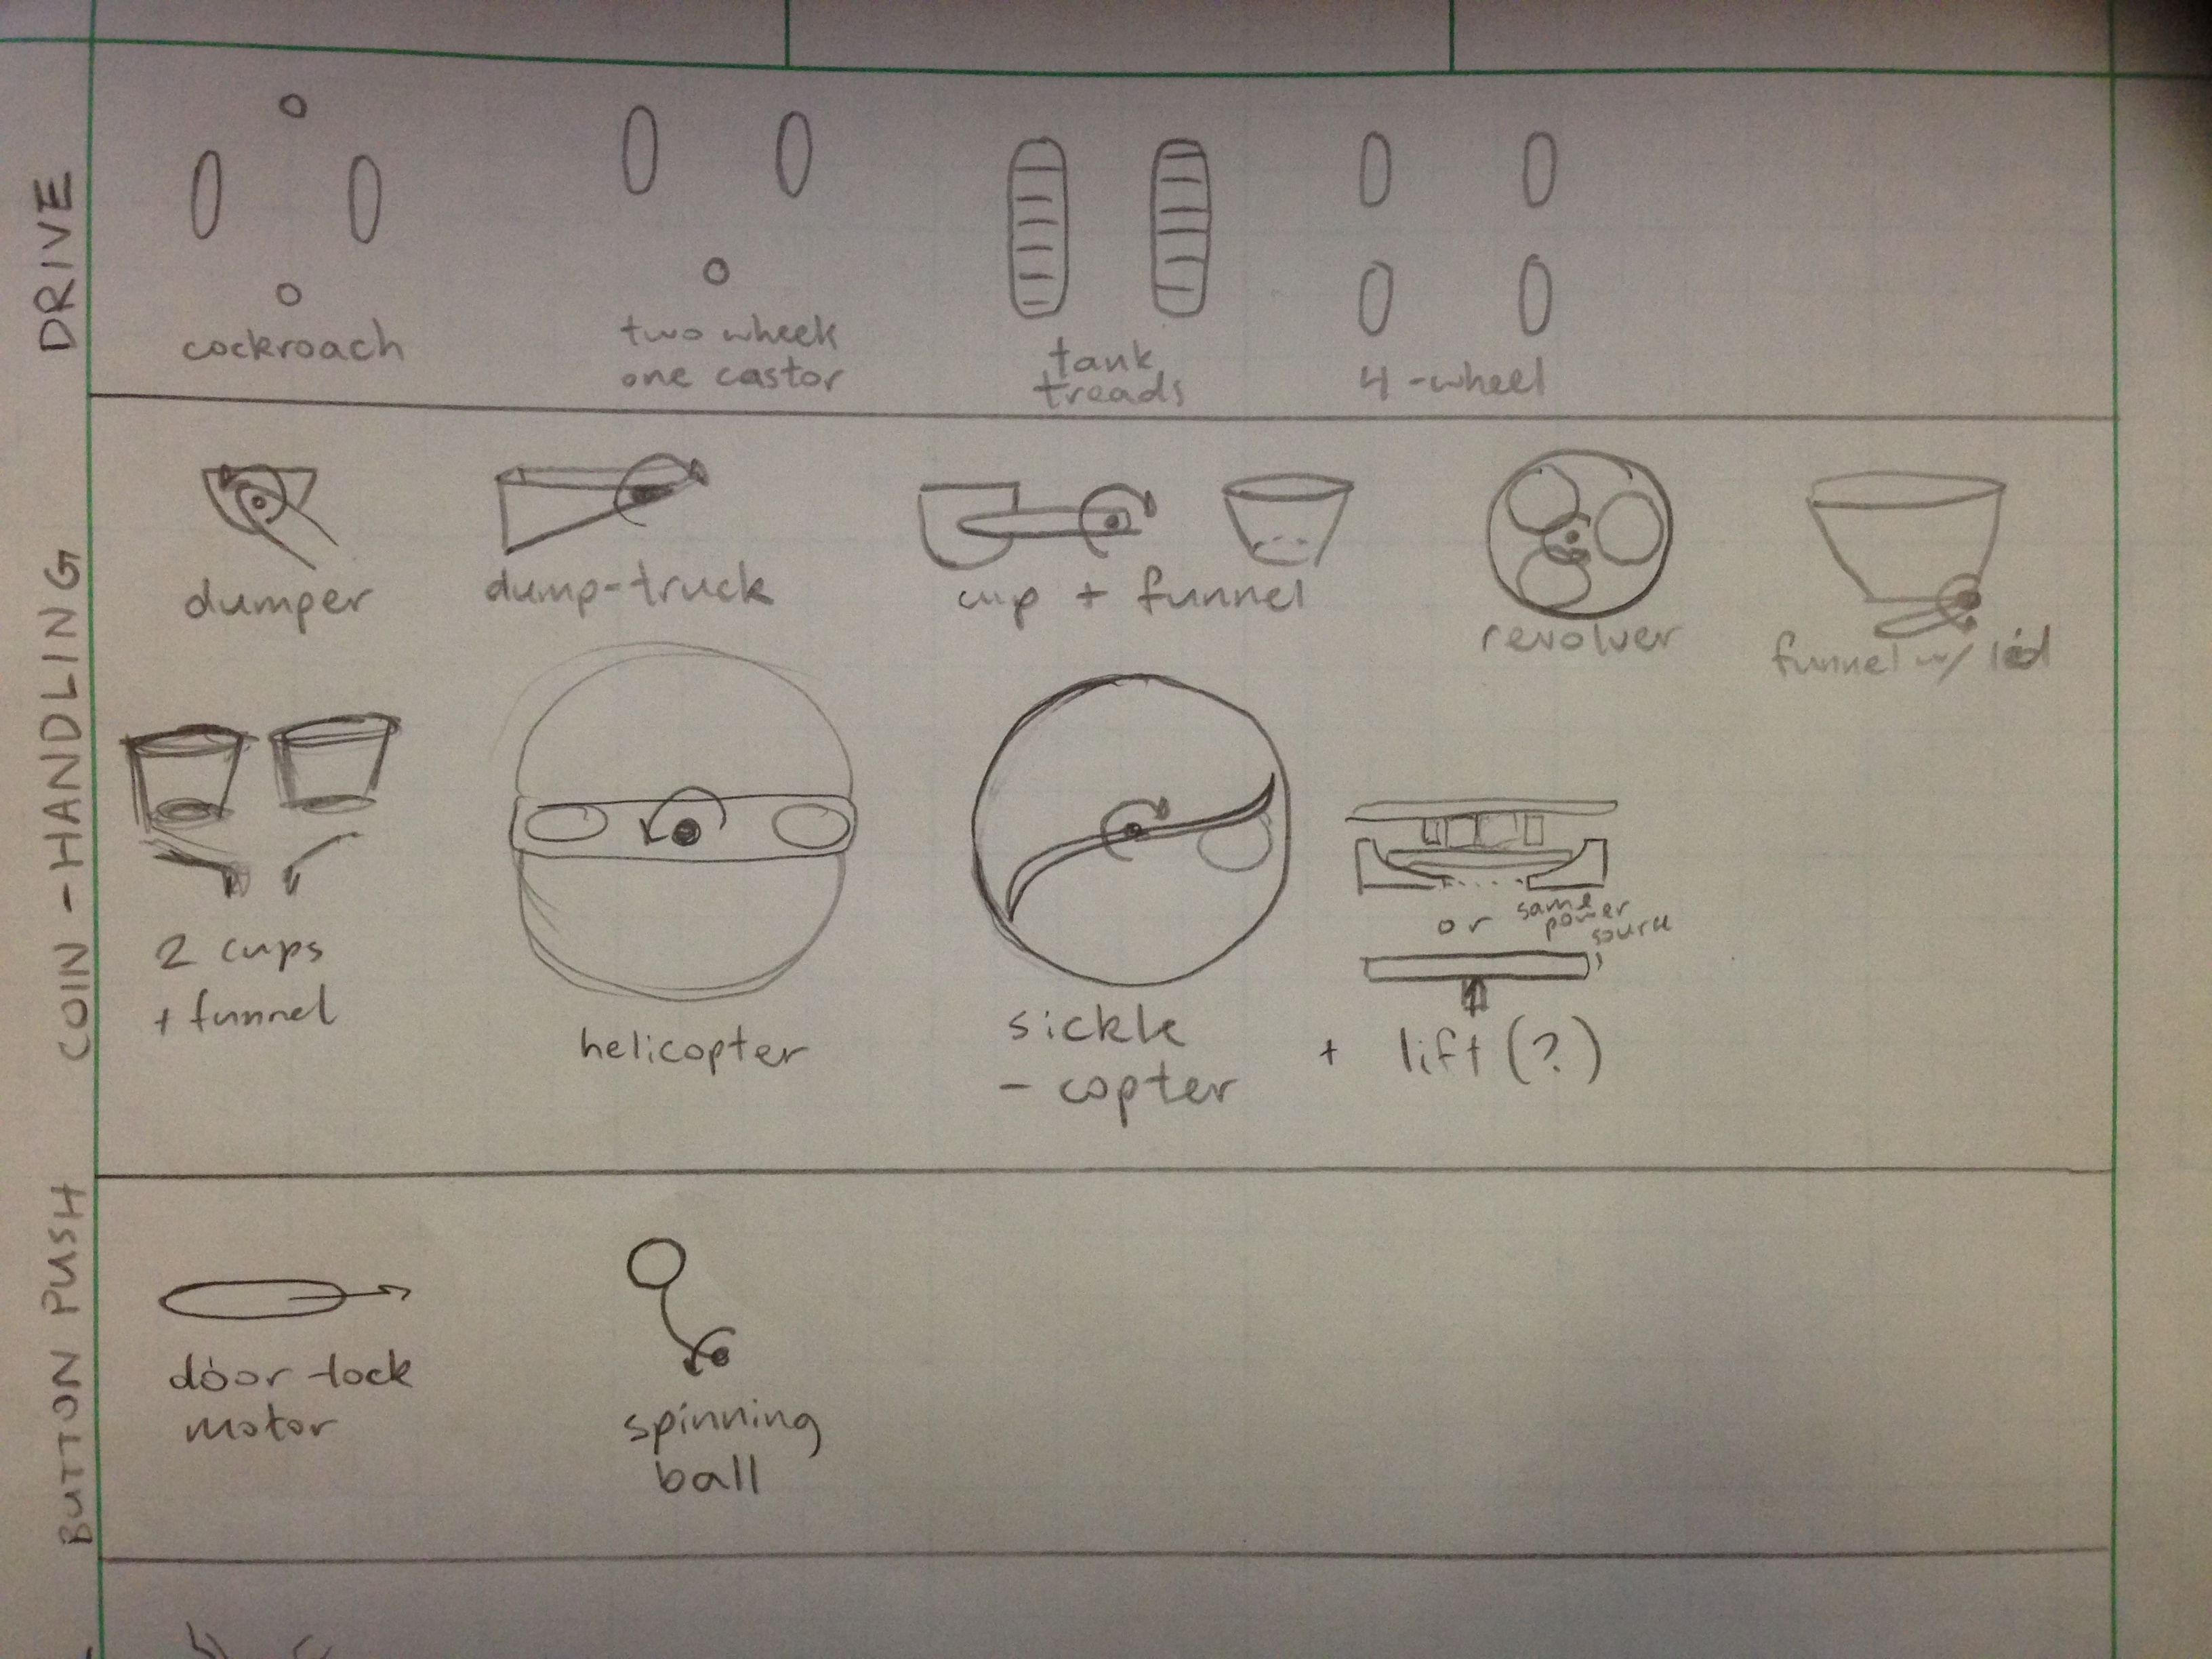 DRIVE
cockroach
two wheels
one castor
tank
treads
4-wheel
COIN-HANDLING
dumper
dump-truck
cup + funnel
revolver
funnel w/ lid
2 cups
+ funnel
helicopter
sickle
- copter
or same
power
source
+ lift (?)
BUTTON PUSH
door-lock
motor
spinning
ball